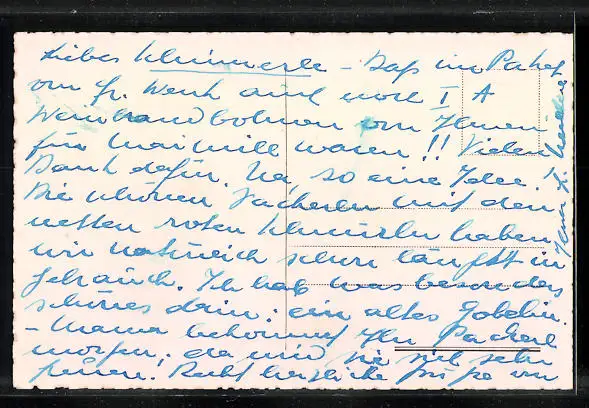 Liebes Schnürerle – Daß im Paket
von Fr. Werk auch noch I A
Weinbrandbohnen von Ihnen
für waren!! Vielen
Dank dafür. Na, so eine Idee!
Die schönen Sackerln mit den
netten roten haben
wir natürlich schon längst in
Gebrauch. Ich hab was besonders
schönes drin: ein altes Gobelin.
– Mama bekommt Ihr Packerl
morgen, da wird sie sich sehr
freuen! Recht herzliche Grüße von
Ihrer